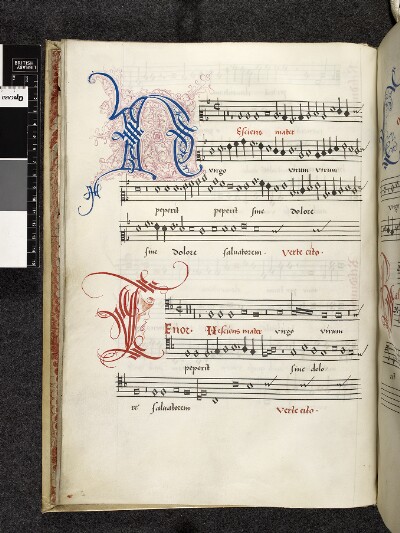 BRITISH
LIBRARY
N
esciens mater
virgo virum virum
peperit peperit sine dolore
sine dolore salvatorem. Verte cito.
Tenor. Nesciens mater virgo virum
peperit sine dolo
re salvatorem Verte cito.